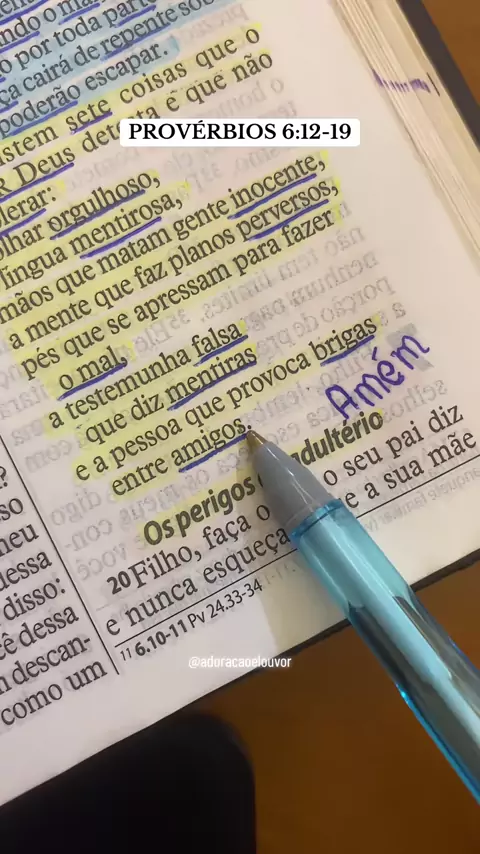 ndo o ma
o por toda parte
ça cairá de repente so
poderão escapar.
istem sete coisas que o
R Deus detesta e que não
olerar:
PROVÉRBIOS 6:12-19
olhar orgulhoso,
língua mentirosa,
mãos que matam gente inocente,
a mente que faz planos perversos,
pés que se apressam para fazer
o mal,
a testemunha falsa
que diz mentiras
e a pessoa que provoca brigas
entre amigos.
Amém
Os perigos adultério
20 Filho, faça o o seu pai diz
e nunca esqueça e a sua mãe
11 6.10-11 Pv 24.33-34
?
so
neu
dessa
disso:
cê dessa
descan-
como um
@adoracaoelouvor